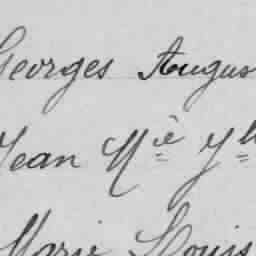 Georges Augus
Jean Mie Yh
Marie Louis